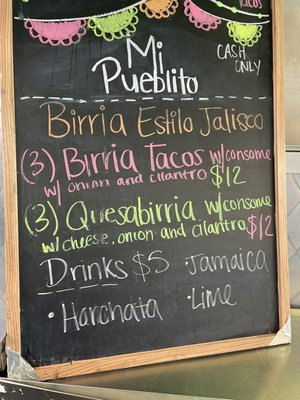 Tacos
CASH
ONLY
Mi
Pueblito
Birria Estilo Jalisco
(3) Birria Tacos w/consome
w/ onion and cilantro $12
(3) Quesabirria w/consome
w/cheese, onion and cilantro $12
Drinks $5 • Jamaica
• Horchata • Lime